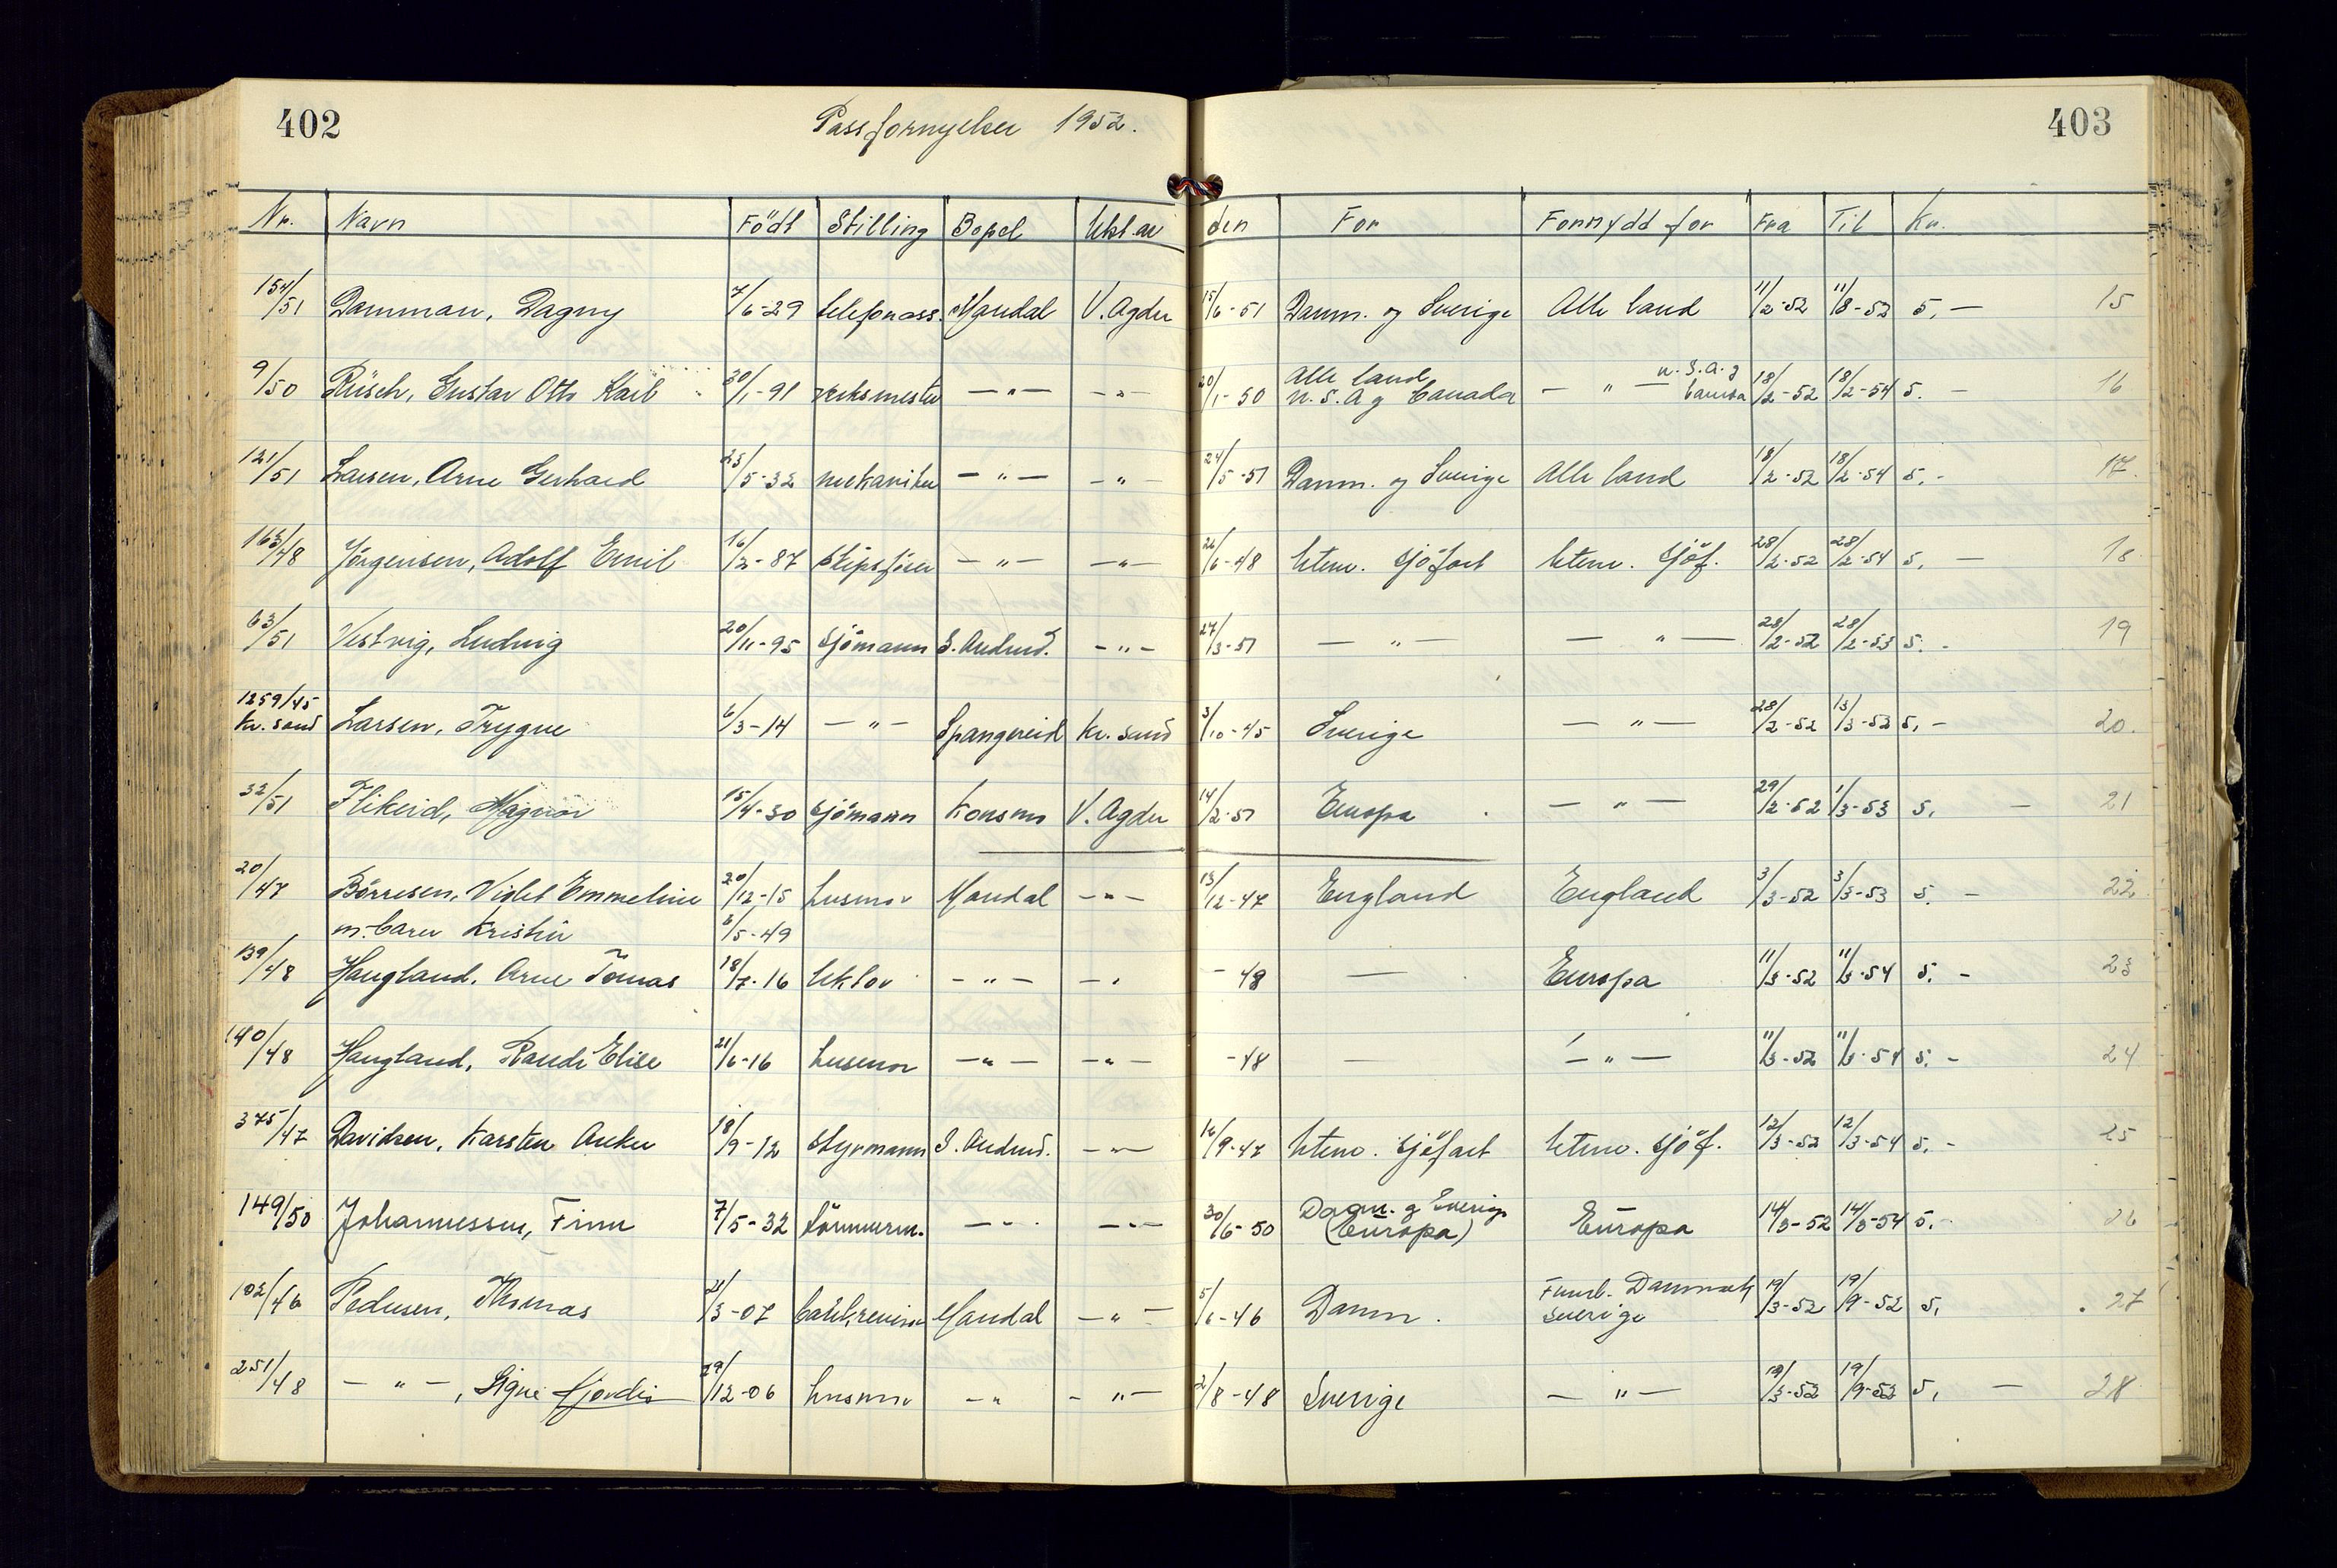 402
Passfornyelser 1952.
403
Nr. Navn Födt Stilling Bopel Utst. av den For Fornydd for Fra Til Kr.
154/51 Damman, Dagny 7/6-29 telefonass. Mandal V. Agder 15/6-51 Danm. og Sverige Alle land 11/2-52 11/8-53 5.- 15
9/50 Rüsch, Gustav Otto Karl 30/1-91 verksmester -"- -"- 20/1-50 Alle land U.S.A og Canada -"- U.S.A. g Canada 18/2-52 18/2-54 5.- 16
121/51 Larsen, Arne Gerhard 25/5-32 mekaniker -"- -"- 24/5-51 Danm. og Sverige Alle land 18/2-52 18/2-54 5.- 17.
163/48 Jörgensen, Adolf Emil 16/2-87 skipsförer -"- -"- 26/6-48 Utenr. sjöfart Utenr. sjöf. 28/2-52 28/2-54 5.- 18
63/51 Vestvig, Ludvig 20/11-95 sjömann S. Audned. -"- 27/3-51 -"- -"- 28/2-52 28/2-53 5.- 19
1259/45 Kr. sand Larsen, Trygve 6/3-14 -"- Spangereid Kr. sand 3/10-45 Sverige -"- 28/2-52 13/3-53 5.- 20.
32/51 Flikeid, Magnor 15/4-30 sjömann Konsmo V. Agder 14/2-51 Europa -"- 29/2-52 1/3-53 5.- 21
20/47 Börresen, Violet Emmeline 20/12-15 husmor Mandal -"- 13/12-47 England England 3/3-52 3/3-53 5.- 22
m. barn Kristin 6/5-49
139/48 Haugland, Arne Tomas 18/7-16 lektor -"- -"- -48 - Europa 11/3-52 11/3-54 5.- 23
140/48 Haugland, Randi Elise 21/6-16 husmor -"- -"- -48 - -"- 11/3-52 11/3-54 5.- 24
375/47 Davidsen, Karsten Anker 18/9-12 styrmann S. Audned. -"- 16/9-47 Utenr. sjöfart Utenr. sjöf. 12/3-52 12/3-54 5.- 25
149/50 Johannessen, Finn 7/5-32 tömmerm. -"- -"- 30/6-50 Danm. g Sverige (Europa) Europa 14/3-52 14/3-54 5.- 26
102/46 Pedersen, Thomas 21/3-07 Mandal -"- 5/6-46 Danm. Danmark Sverige 19/3-52 19/9-52 5. 27
251/48 -"-, Signe Hjördis 29/12-06 husmor -"- -"- 2/8-48 Sverige -"- 19/3-52 19/9-52 5.- 28